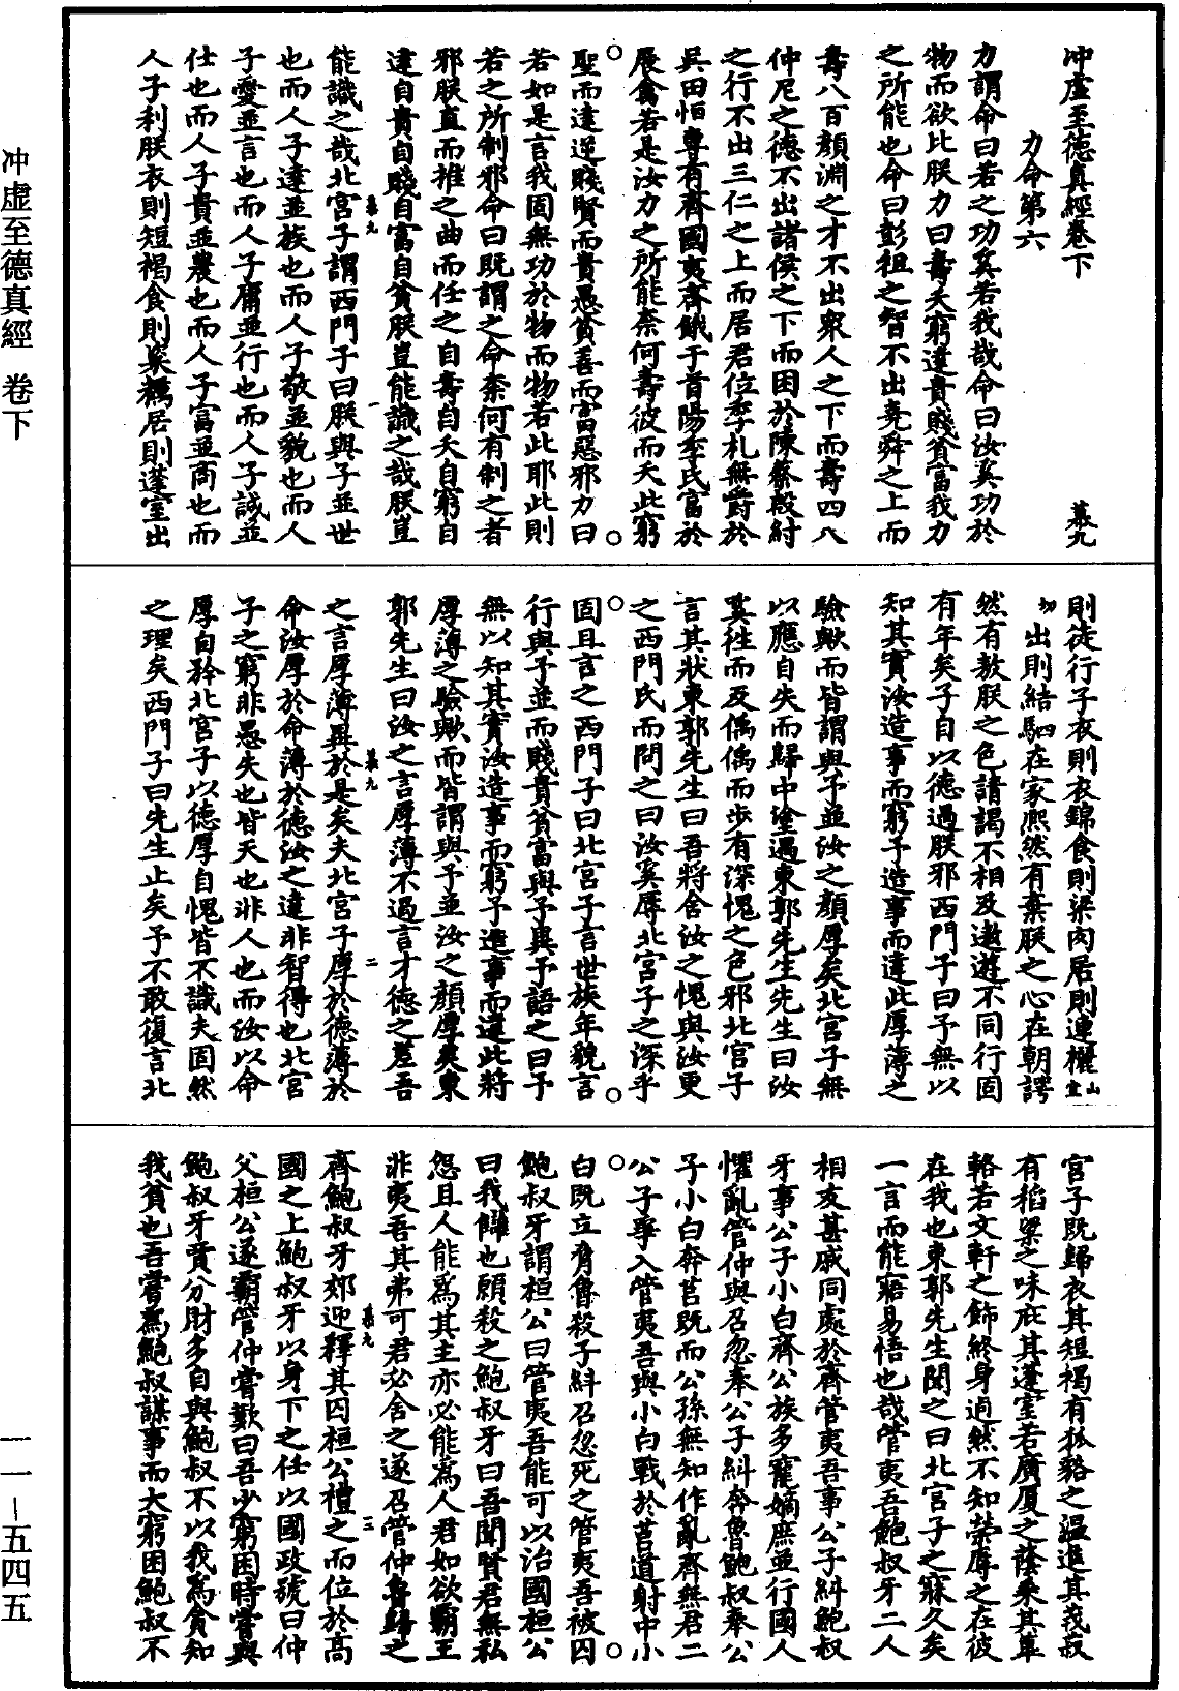 沖虛至德真經卷下　慕九
力命第六
力謂命曰若之功奚若我哉命曰汝奚功於
物而欲比朕力曰壽夭窮達貴賤貧富我力
之所能也命曰彭祖之智不出堯舜之上而
壽八百顏淵之才不出眾人之下而壽四八
仲尼之德不出諸侯之下而困於陳蔡殷紂
之行不出三仁之上而居君位季札無爵於
吳田恒專有齊國夷齊餓于首陽季氏富於
展禽若是汝力之所能柰何壽彼而夭此窮
聖而達逆賤賢而貴愚貧善而富惡邪力曰
若如是言我固無功於物而物若此耶此則
若之所制邪命曰既謂之命柰何有制之者
邪朕直而推之曲而任之自壽自夭自窮自
達自貴自賤自富自貧朕豈能識之哉朕豈
慕九　一
能識之哉北宮子謂西門子曰朕與子並世
也而人子達並族也而人子敬並貌也而人
子愛並言也而人子庸並行也而人子誠並
仕也而人子貴並農也而人子富並商也而
人子利朕衣則短褐食則粢糲居則蓬室出
則徒行子衣則衣錦食則粱肉居則連欐山宜
切出則結駟在家熙然有棄朕之心在朝諤
然有敖朕之色請謁不相及遨遊不同行固
有年矣子自以德過朕邪西門子曰予無以
知其實汝造事而窮予造事而達此厚薄之
驗歟而皆謂與予並汝之顏厚矣北宮子無
以應自失而歸中塗遇東郭先生先生曰汝
奚往而反偊偊而步有深愧之色邪北宮子
言其狀東郭先生曰吾將舍汝之愧與汝更
之西門氏而問之曰汝奚辱北宮子之深乎
固且言之西門子曰北宮子言世族年貌言
行與予並而賤貴貧富與予異予語之曰予
無以知其實汝造事而窮予造事而達此將
厚薄之驗歟而皆謂與予並汝之顏厚矣東
郭先生曰汝之言厚薄不過言才德之差吾
慕九　二
之言厚薄異於是矣夫北宮子厚於德薄於
命汝厚於命薄於德汝之達非智得也北宮
子之窮非愚失也皆天也非人也而汝以命
厚自矜北宮子以德厚自愧皆不識夫固然
之理矣西門子曰先生止矣予不敢復言北
宮子既歸衣其短褐有狐貉之溫進其茙菽
有稻粱之味庇其蓬室若廣厦之蔭乘其篳
輅若文軒之飾終身逌然不知榮辱之在彼
在我也東郭先生聞之曰北宮子之寐久矣
一言而能寤易悟也哉管夷吾鮑叔牙二人
相友甚戚同處於齊管夷吾事公子糾鮑叔
牙事公子小白齊公族多寵嫡庶並行國人
懼亂管仲與召忽奉公子糾奔魯鮑叔奉公
子小白奔莒既而公孫無知作亂齊無君二
公子爭入管夷吾與小白戰於莒道射中小
白既立脅魯殺子糾召忽死之管夷吾被囚
鮑叔牙謂桓公曰管夷吾能可以治國桓公
曰我讎也願殺之鮑叔牙曰吾聞賢君無私
怨且人能為其主亦必能為人君如欲霸王
非夷吾其弗可君必舍之遂召管仲魯歸之
慕九　三
齊鮑叔牙郊迎釋其囚桓公禮之而位於高
國之上鮑叔牙以身下之任以國政號曰仲
父桓公遂霸管仲嘗歎曰吾少窮困時嘗與
鮑叔牙賈分財多自與鮑叔不以我為貪知
我貧也吾嘗為鮑叔謀事而大窮困鮑叔不
沖虛至德真經　卷下
一一—五四五